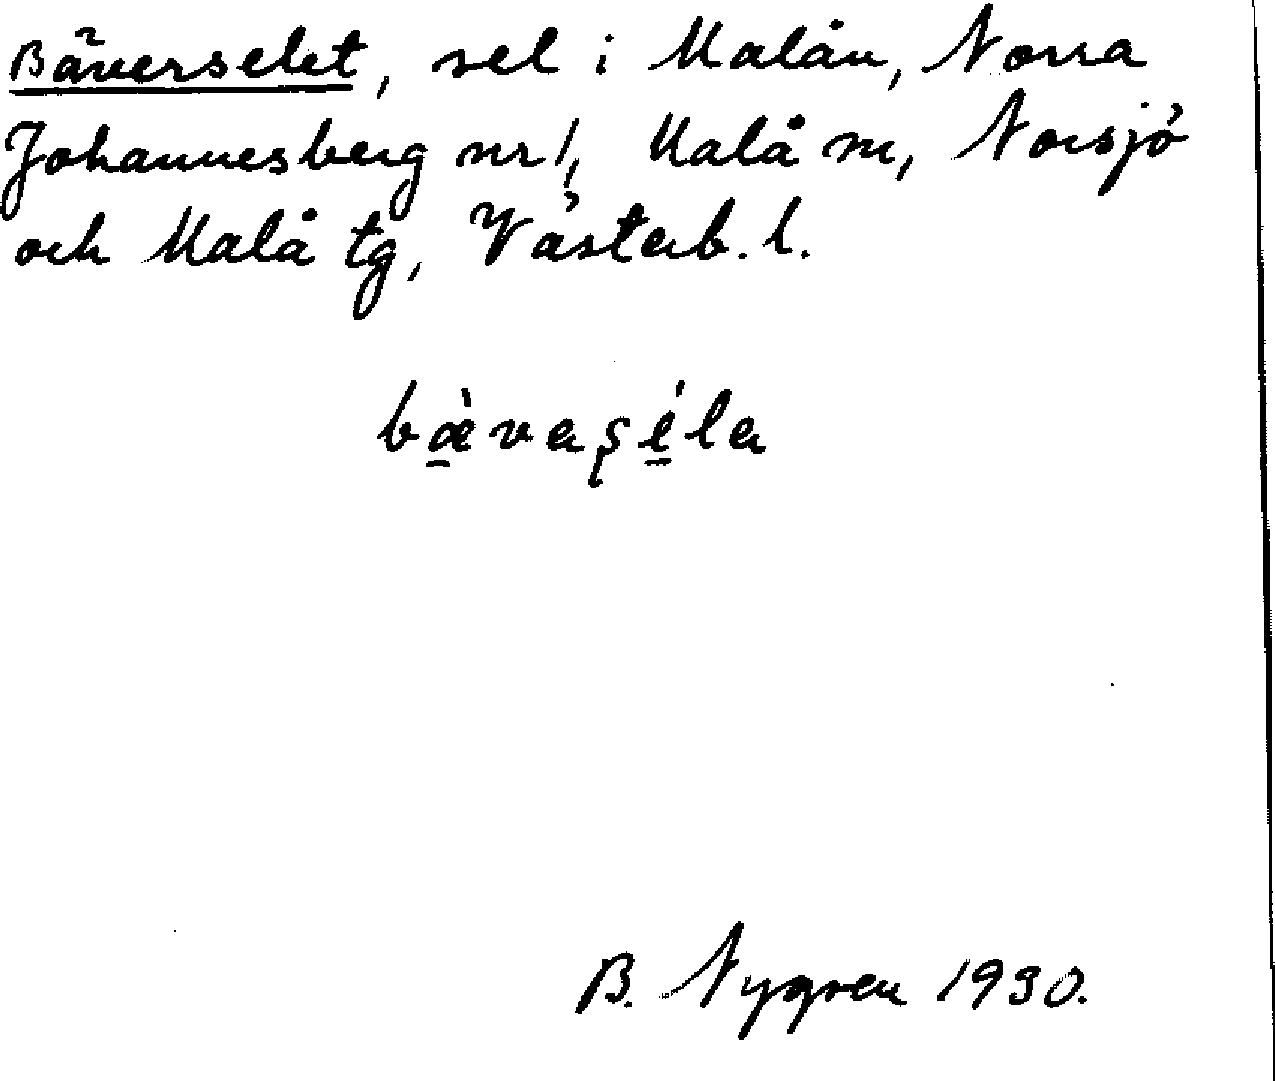 Bäverselet, sel i Malån, Norra
Johannesberg nr 1, Malå sn, Norsjö
och Malå tg, Västerb. l.
bæ̀vaşéla
B. Nygren 1930.